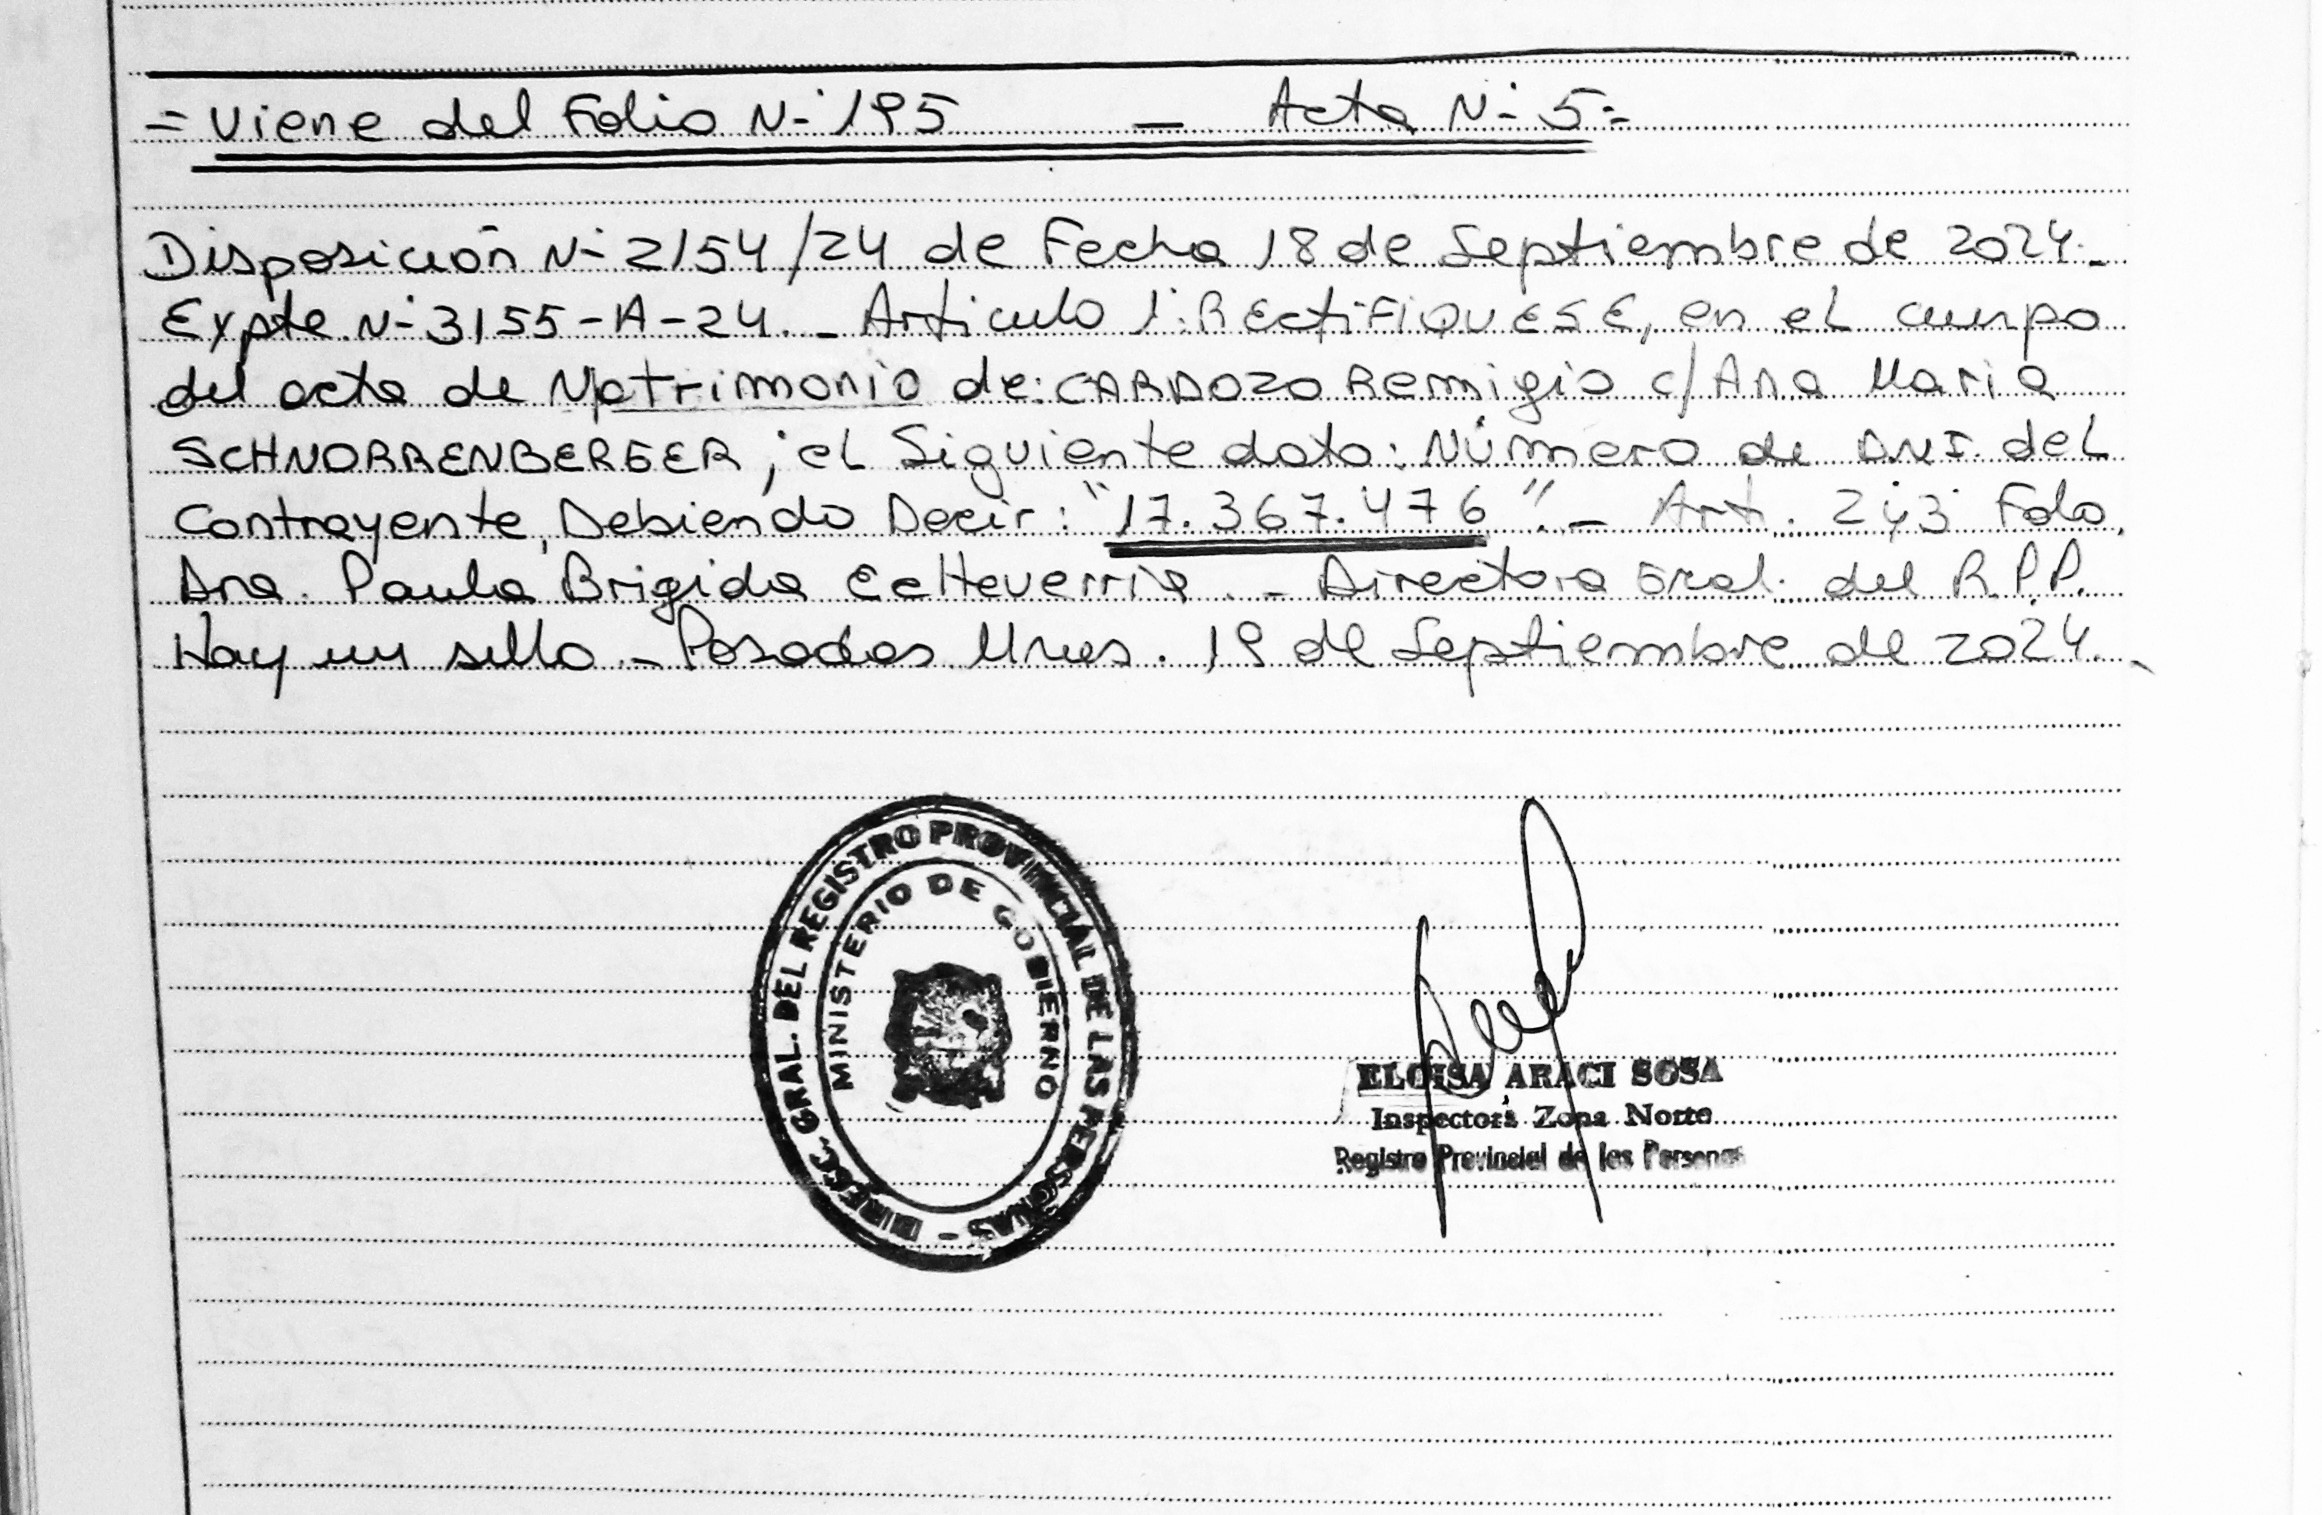 = Viene del Folio N° 195 — Acta N° 5 =
Disposición N° 2154/24 de Fecha 18 de Septiembre de 2024.-
Expte. N° 3155-A-24.- Articulo 1°: RECTIFIQUESE, en el cuerpo
del acta de Matrimonio de: CARDOZO Remigio c/ Ana Maria
SCHNORRENBERGER; el Siguiente dato: Número de D.N.I. del
Contrayente, Debiendo Decir: "17.367.476".- Art. 2 y 3 Fdo.
Dra. Paula Brigida Echeverria.- Directora Gral. del R.P.P.
Hay un sello - Posadas Mnes. 19 de Septiembre de 2024.-
DIRECC. GRAL. DEL REGISTRO PROVINCIAL DE LAS PERSONAS -
MINISTERIO DE GOBIERNO
ELOISA ARACI SOSA
Inspectora Zona Norte
Registro Provincial de las Personas